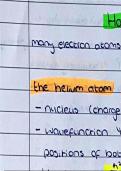 Ha
many electron atoms
the helium atom
- nucleus (charge
- wavefunction
positions of bot